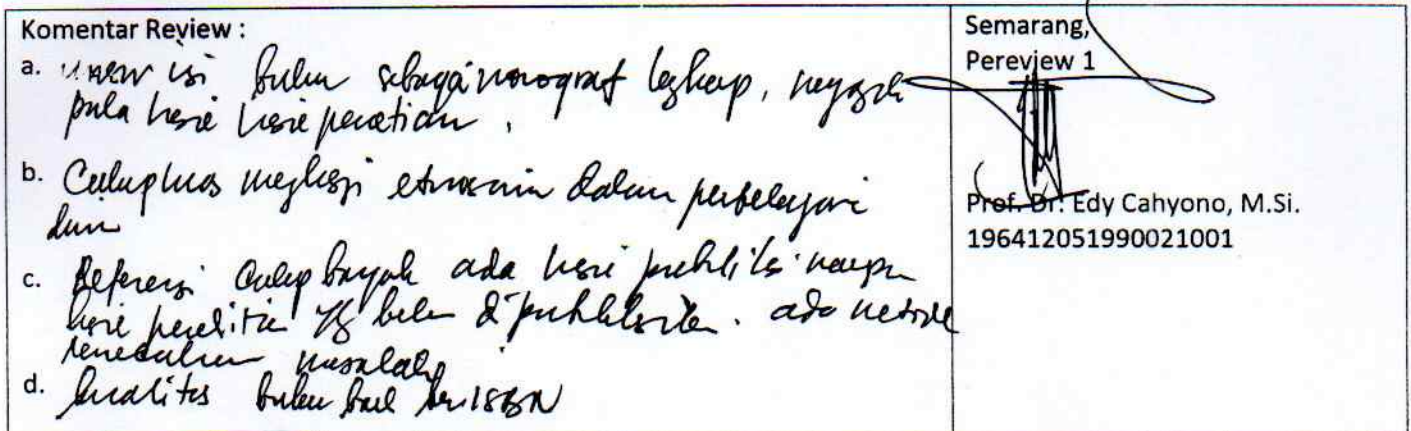 Komentar Review :
a. unsur isi buku sebagai monograf lengkap,
pula hasil hasil penelitian .
b. Cukup luas etnosains dalam
c. Referensi cukup banyak ada hasil publikasi maupun
hasil penelitian yg belum dipublikasikan. ada metode
pemecahan masalah
d. kualitas buku baik ber ISBN
Semarang,
Pereview 1
Prof. Dr. Edy Cahyono, M.Si.
196412051990021001